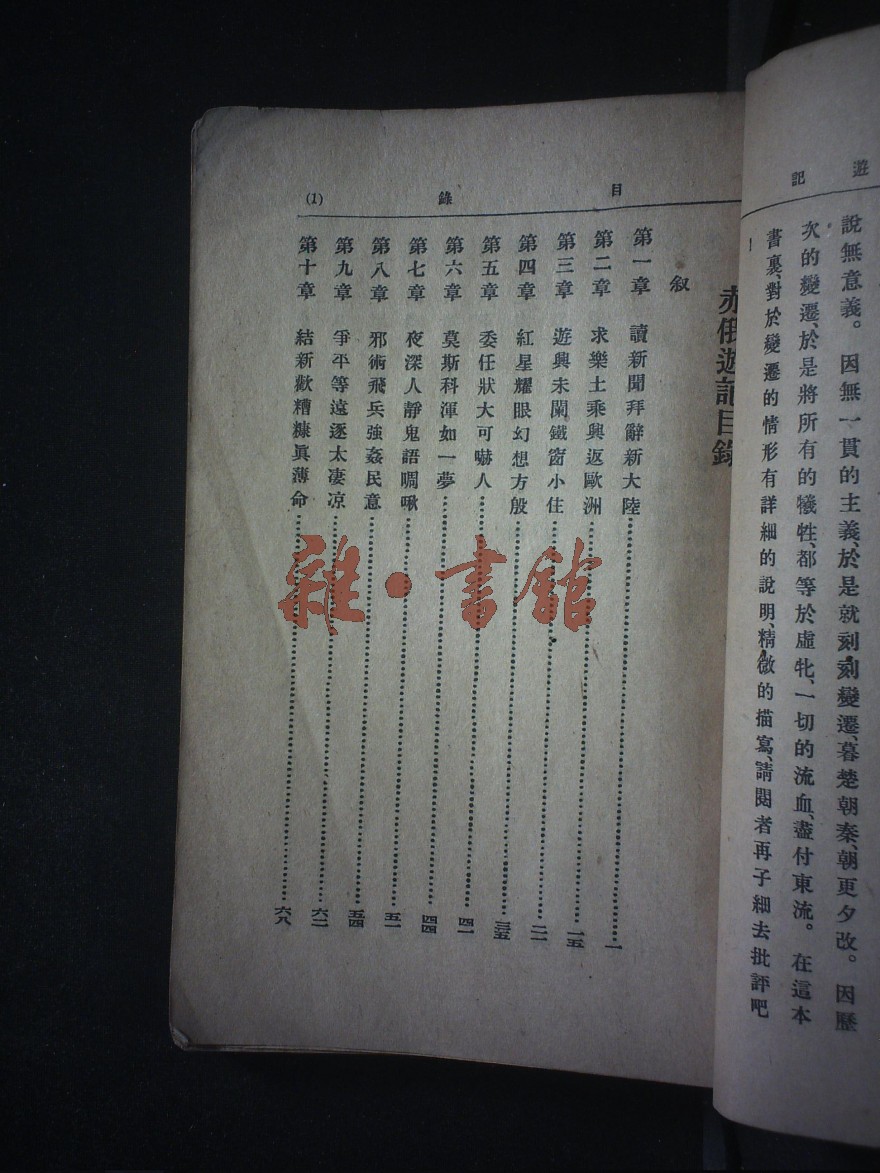 遊記
說無意義。因無一貫的主義、於是就刻刻變遷、暮楚朝秦、朝更夕改。因歷
次的變遷、於是將所有的犧牲、都等於虛牝、一切的流血、盡付東流。在這本
書裏、對於變遷的情形有詳細的說明、精微的描寫、請閱者再子細去批評吧
！
目錄 (1)
赤俄遊記目錄
敘
第一章 讀新聞拜辭新大陸……一
第二章 求樂土乘興返歐洲……一五
第三章 遊興未闌鐵窗小住……二一
第四章 紅星耀眼幻想方殷……三五
第五章 委任狀大可嚇人……四一
第六章 莫斯科渾如一夢……四四
第七章 夜深人靜鬼語啁啾……五一
第八章 邪術飛兵強姦民意……五四
第九章 爭平等遠逐太凄凉……六二
第十章 結新歡糟糠眞薄命……六八
雜·書館